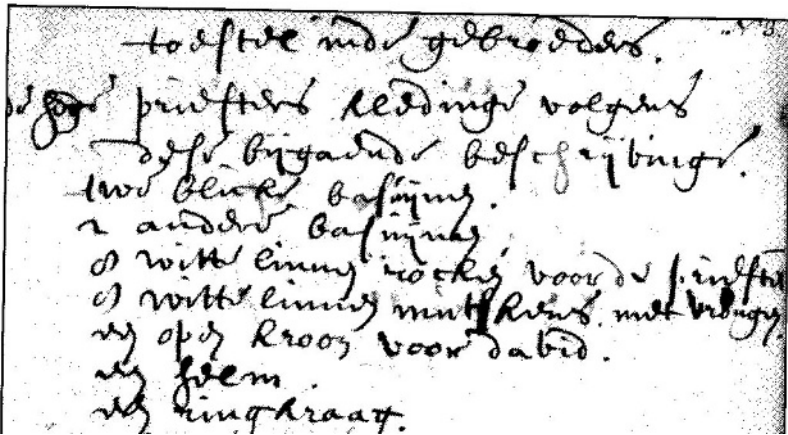 toestel inde gebroeders.
de hoge priesters kledinge volgens
dese bijgaende beschrijvinge.
twe blicke basuijnen.
2 andere basuijnen
8 witte linnen rocken voor de prieste
8 witte linnen mutskens met
een open kroon voor david.
een helm.
een ringkraag.